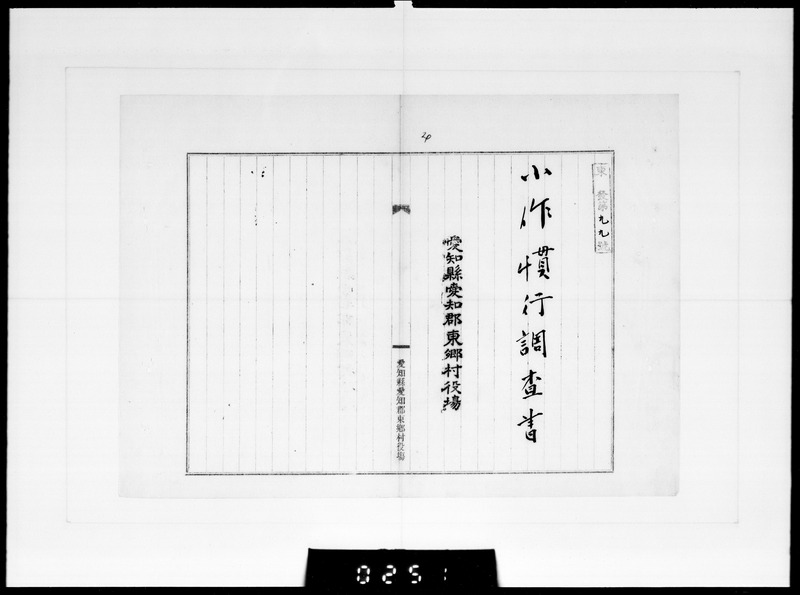 東 發第九九號
小作慣行調査書
愛知縣愛知郡東郷村役場
愛知縣愛知郡東鄉村役場
24
0251